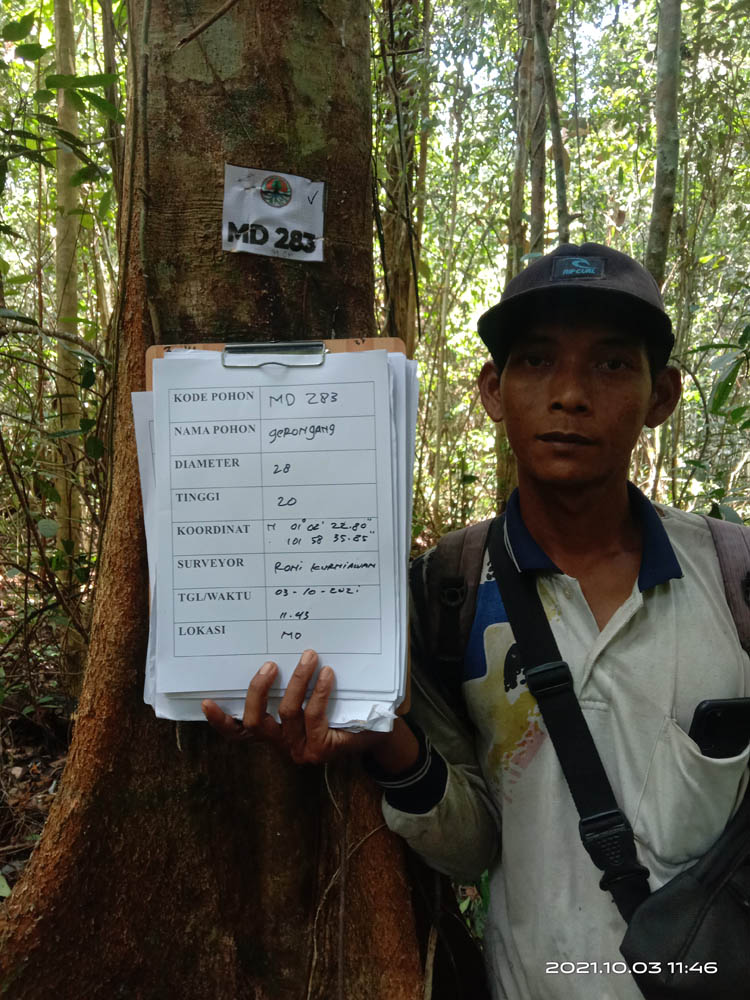 MD 283
RIP CURL
KODE POHON MD 283
NAMA POHON GERONGANG
DIAMETER 28
TINGGI 20
KOORDINAT N 01° 02' 22.80"
101 58 35.85"
SURVEYOR RONI KURNIAWAN
TGL/WAKTU 03-10-2021
11.43
LOKASI MD
2021.10.03 11:46